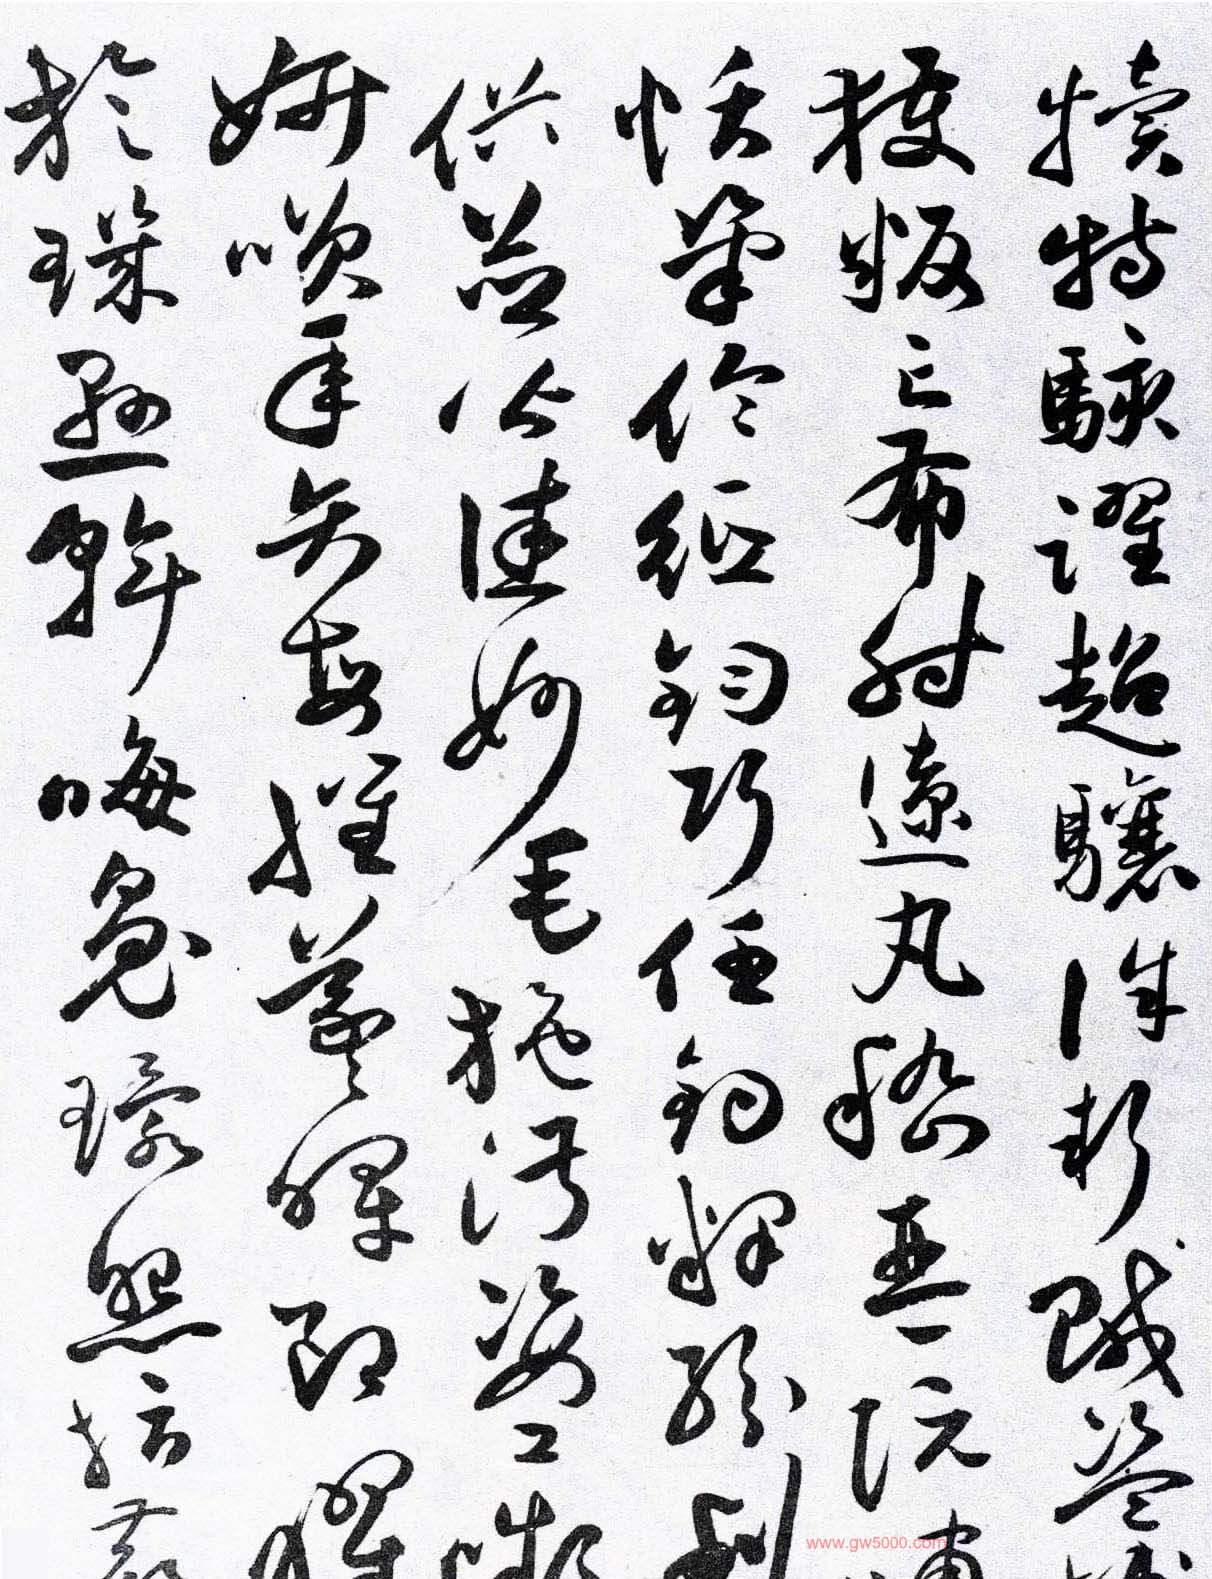 犊特骇躍超驤誅斬賊盜
捕獲叛亡布射遼丸嵇琴阮嘯
恬筆倫紙鈞巧任釣釋紛利
俗並皆佳妙毛施淑姿工嚬
妍笑年矢每催羲暉朗曜
旋璣懸斡晦魄環照指薪
www.gw5000.com